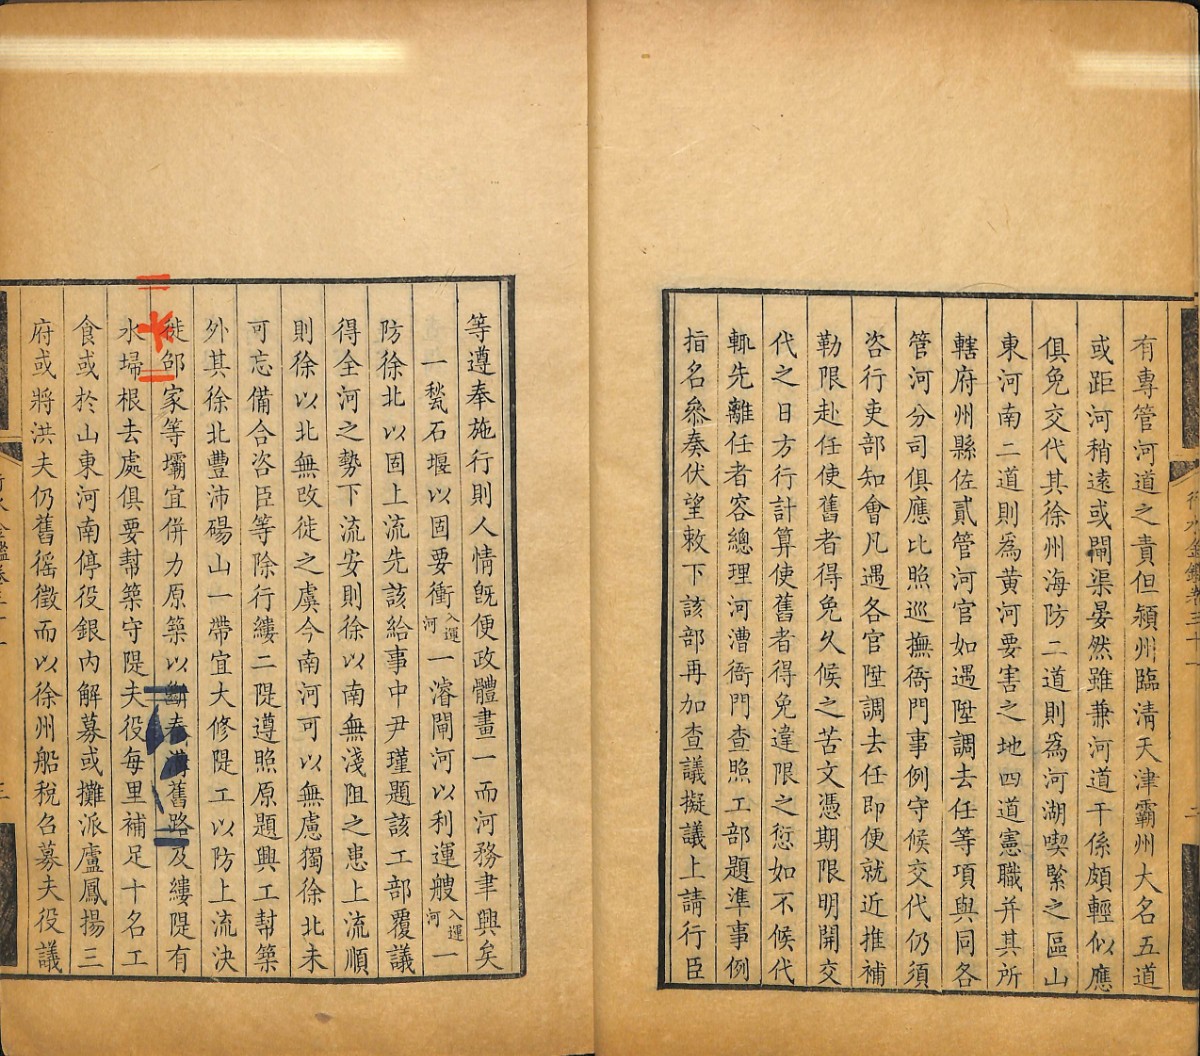 有專管河道之責但潁州臨淸天津霸州大名五道
或距河稍遠或閘渠晏然雖兼河道干係頗輕似應
俱免交代其徐州海防二道則爲河湖喫緊之區山
東河南二道則爲黃河要害之地四道憲職幷其所
轄府州縣佐貳管河官如遇陞調去任等項與同各
管河分司俱應比照巡撫衙門事例守候交代仍須
咨行吏部知會凡遇各官陞調去任即便就近推補
勒限赴任使舊者得免久候之苦文憑期限明開交
代之日方行計算使舊者得免違限之愆如不候代
輒先離任者容總理河漕衙門查照工部題準事例
指名叅奏伏望敕下該部再加查議擬議上請行臣
等遵奉施行則人情旣便政體畫一而河務聿興矣
一甃石堰以固要衝入運河一濬閘河以利運艘入運河一
防徐北以固上流先該給事中尹瑾題該工部覆議
得全河之勢下流安則徐以南無淺阻之患上流順
則徐以北無改徙之虞今南河可以無慮獨徐北未
可忘備合咨臣等除行縷二隄遵照原題興工幇築
外其徐北豐沛碭山一帶宜大修隄工以防上流決
徙邰家等壩宜併力原築以斷舊路及縷隄有
水埽根去處俱要幇築守隄夫役每里補足十名工
食或於山東河南停役銀內解募或攤派廬鳳揚三
府或將洪夫仍舊徭徵而以徐州船稅召募夫役議